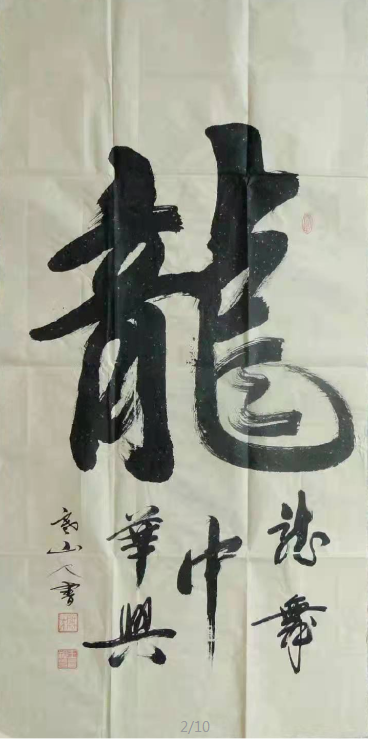 龍
龍舞
中
華興
高山人書
2/10